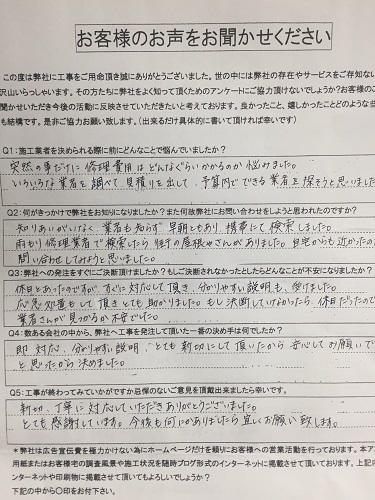 お客様のお声をお聞かせください
この度は弊社に工事をご用命頂き誠にありがとうございました。世の中には弊社の存在やサービスをご存知ない
沢山いらっしゃいます。その方たちに弊社をよく知って頂くためのアンケートにご協力頂けないでしょうか?お客様のご
聞かせいただき今後の活動に反映させていただきたいと考えております。良かったこと、嬉しかったことどのような些
も結構です。是非ご協力お願い致します。(出来るだけ具体的に書いて頂ければ幸いです)
Q1:施工業者を決められる際に前にどんなことで悩んでいましたか?
突然の事だけに修理費用はどんなぐらいかかるのか悩みました。
いろいろな業者を調べて見積りを出して、予算内でできる業者を探そうと思いました
Q2:何がきっかけで弊社をお知りになりましたか?また何故弊社にお問い合わせをしようと思われたのですか?
知りあいがいなく業者も知らず早朝もあり、携帯にて検索しました。
雨もり修理業者で検索したら街の屋根やさんがありました。自宅からも近かったの
問い合わせしてみようと思いました。
Q3:弊社への発注をすぐにご決断頂けますか?もしご決断されなかったとしたらどんなことが不安になりましたか?
休日とあったのですが、すぐに対応して頂き、分かりやすい説明も、受けました。
応急処置もして頂きとても助かりました。もし決断していなかったら、休日だったので
業者さんが見つかるか不安でした。
Q4:数ある会社の中から、弊社へ工事を発注して頂いた一番の決め手は何でしたか?
即対応、分かりやすい説明、とても親切にして頂いたから安心してお願いで
と思ったから決めました。
Q5:工事が終わってみていかがですか忌憚のないご意見を頂戴出来ましたら幸いです。
親切、丁寧に対応していただきありがとうございました。
とても感謝しています。今後も何かありましたら宜しくお願い致します。
*弊社は広告宣伝費を極力かけない為にホームページだけを頼りにお客様への営業活動を行っております。本ア
用紙またはお客様宅の調査風景や施工状況を随時ブログ形式のインターネットに掲載させて頂いております。上記
ンターネットや印刷物に掲載させて頂いてもよろしいでしょうか?
下記の中から○印をお付下さい。